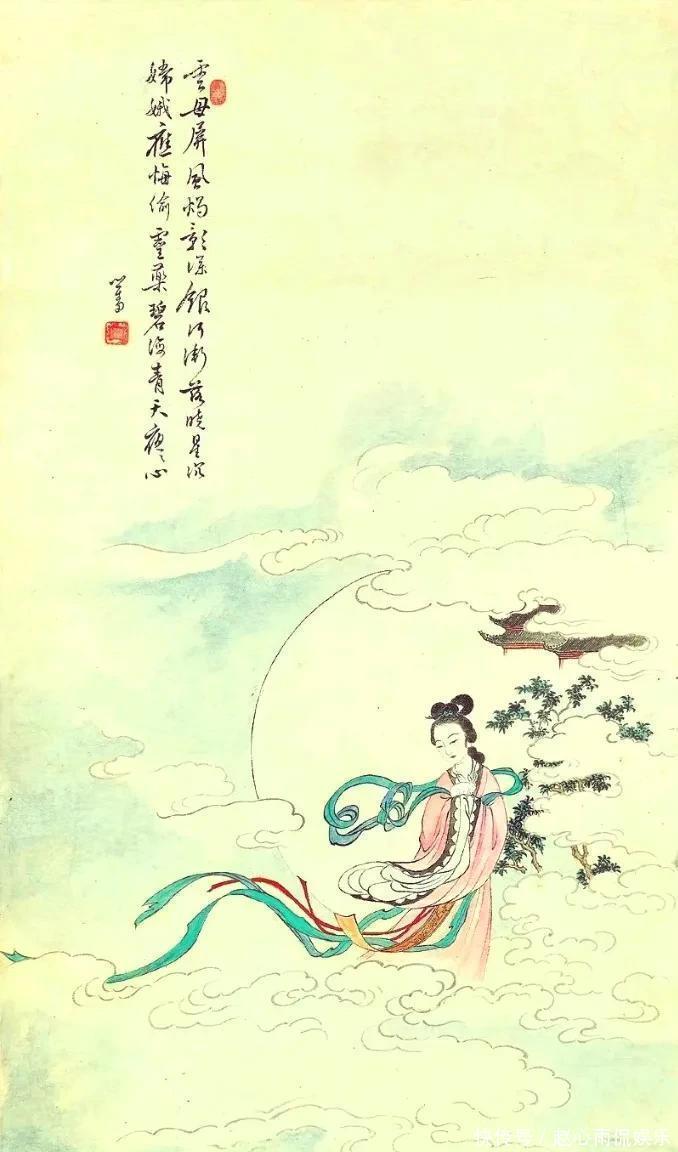 雲母屏風燭影深銀河漸落曉星沉
嫦娥應悔偷靈藥碧海青天夜〻心
心畬
快传号/赵心雨侃娱乐